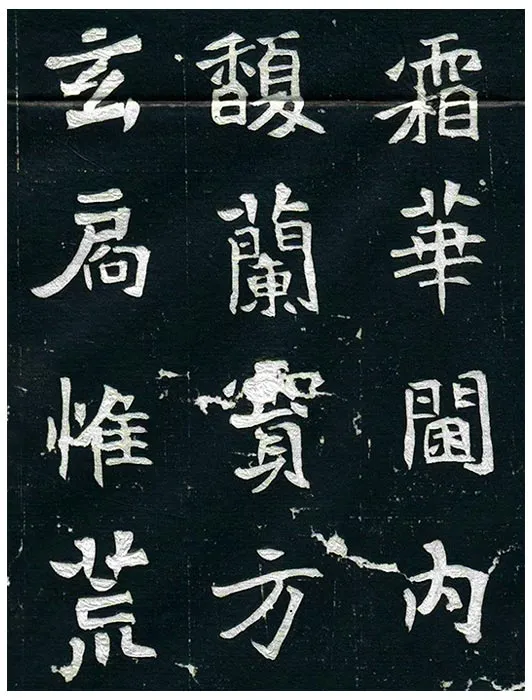 霜華閫内
馥蘭方
玄扃惟荒